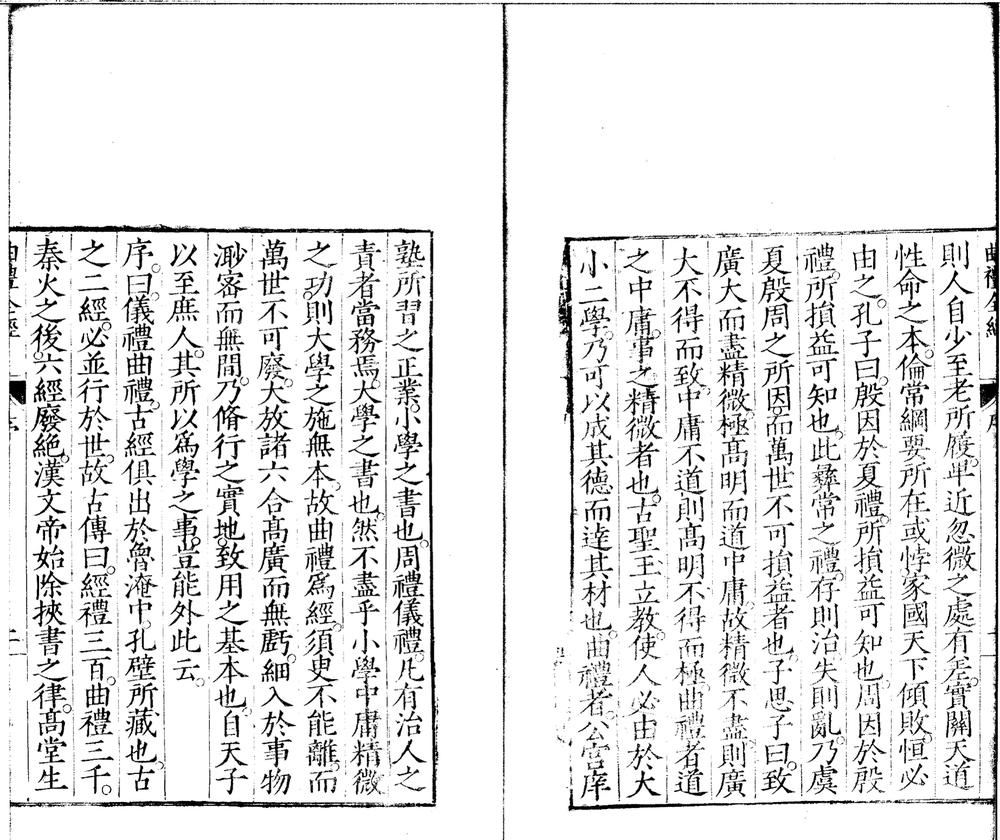 則人自少至老所履卑近忽微之處有差實關天道
性命之本倫常綱要所在或悖家國天下傾敗恒必
由之孔子曰殷因於夏禮所損益可知也周因於殷
禮所損益可知也此彞常之禮存則治失則亂乃虞
夏殷周之所因而萬世不可損益者也子思子曰致
廣大而盡精微極髙明而道中庸故精微不盡則廣
大不得而致中庸不道則髙明不得而極曲禮者道
之中庸事之精微者也古聖王立教使人必由於大
小二學乃可以成其德而逹其材也曲禮者公宮庠
熟所習之正業小學之書也周禮儀禮凡有治人之
責者當務焉大學之書也然不盡乎小學中庸精微
之功則大學之施無本故曲禮爲經須臾不能離而
萬世不可廢大放諸六合髙廣而無虧細入於事物
渺密而無間乃脩行之實地致用之基本也自天子
以至庶人其所以爲學之事豈能外此云
序曰儀禮曲禮古經俱出於魯淹中孔壁所藏也古
之二經必並行於世故古傳曰經禮三百曲禮三千
秦火之後六經廢絶漢文帝始除挾書之律髙堂生
二